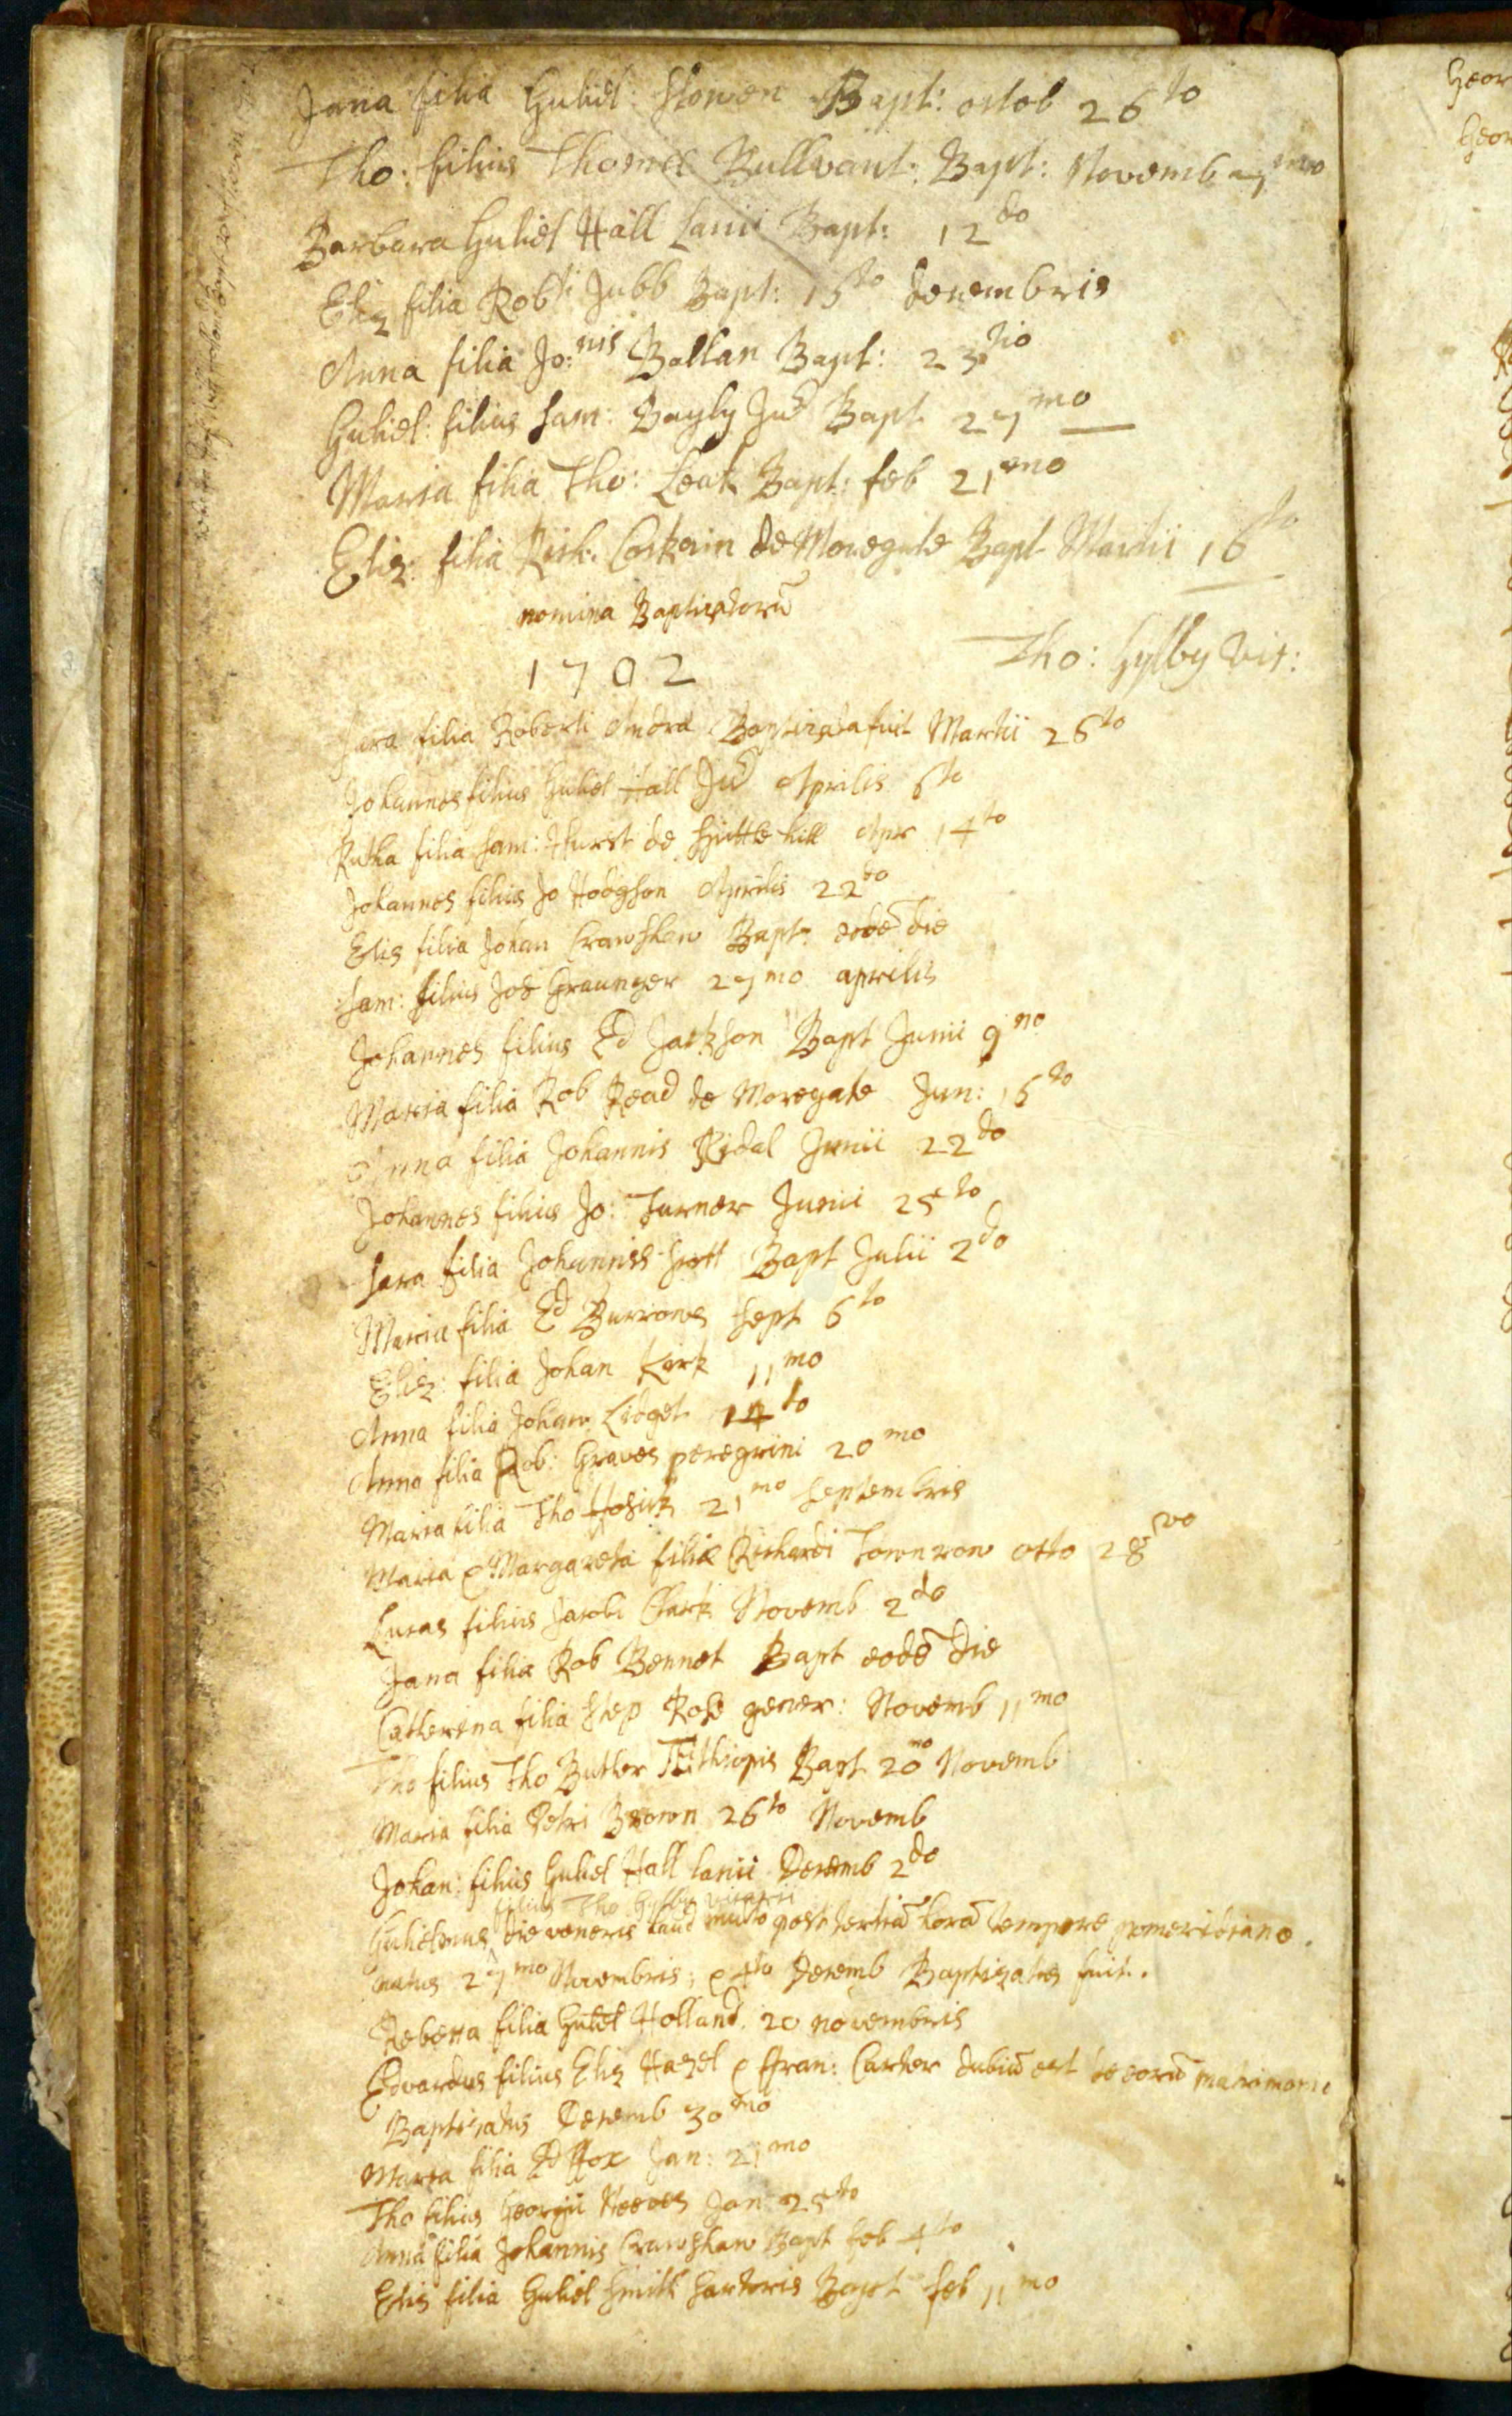 Jana filia Guliel: Stowen Bapt: octob 26to
Tho: filius Thomæ Bullvant: Bapt: Novemb 7mo
Barbara Guliel Hall Lanii Bapt: 12do
Eliz filia Robti Jubb Bapt: 15to decembris
Anna filia Jo:nis Ballan Bapt: 23tio
Guliel: filius Sam: Bayly Jur Bapt 27mo
Maria filia Tho: Leak Bapt: feb 21mo
Eliz: filia Rich: Corkain de Moregate Bapt Martii 16to
nomina Baptizatorū
1702
Tho: Gylby Vic:
Sara filia Roberti Baptizata fuit Martii 26to
Johannes filius Guliel Hall Jur Aprilis 6to
Rutha filia Sam: Hurst de Spittle hill Apr 14to
Johannes filius Jo Hodgson Aprilis 22do
Elis filia Johan Crawshaw Bapt eodē die
Sam: filius Jos Graunger 27mo aprilis
Johannes filius Ed Jackson Bapt Junii 9no
Maria filia Rob Read de Moregate Jun: 15to
Anna filia Johannis Ridal Junii 22do
Johannes filius Jo: Turner Junii 25to
Sara filia Johannis Scott Bapt Julii 2do
Maria filia Ed Burrows Sept 6to
Eliz: filia Johan Kirk 11mo
Anna filia Johan Lidget 14to
Anna filia Rob: Graves peregrini 20mo
Maria filia Tho Hosick 21mo Septembris
Maria & Margareta filiæ Richardi Townrow octo 28vo
Lucas filius Jacobi Clark Novemb 2do
Jana filia Rob Bennet Bapt eodē die
Catherina filia Step Rose gener: Novemb 11mo
Tho filius Tho Butler Æthiopis Bapt 20mo Novemb
Maria filia Petri Brown 26to Novemb
Johan: filius Guliel Hall lanii Decemb 2do
filius Tho Gylby Vicarii
Gulielmus die veneris haud multo post tertiā horā tempore pomeridiano.
natus 27mo Novembris; & 4to Decemb Baptizatus fuit.
Rebecca filia Guliel Holland. 20 novembris
Edvardus filius Eliz Hazel & ffran: Carter dubiū est de eorū matrimonio
Baptizatus Decemb 30mo
Maria filia Ed ffox Jan: 21mo
Tho filius Georgii Reeves Jan 25to
Anna filia Johannis Crawshaw Bapt feb 4to
Elis filia Guliel Smith Sartoris Bapt feb 11mo